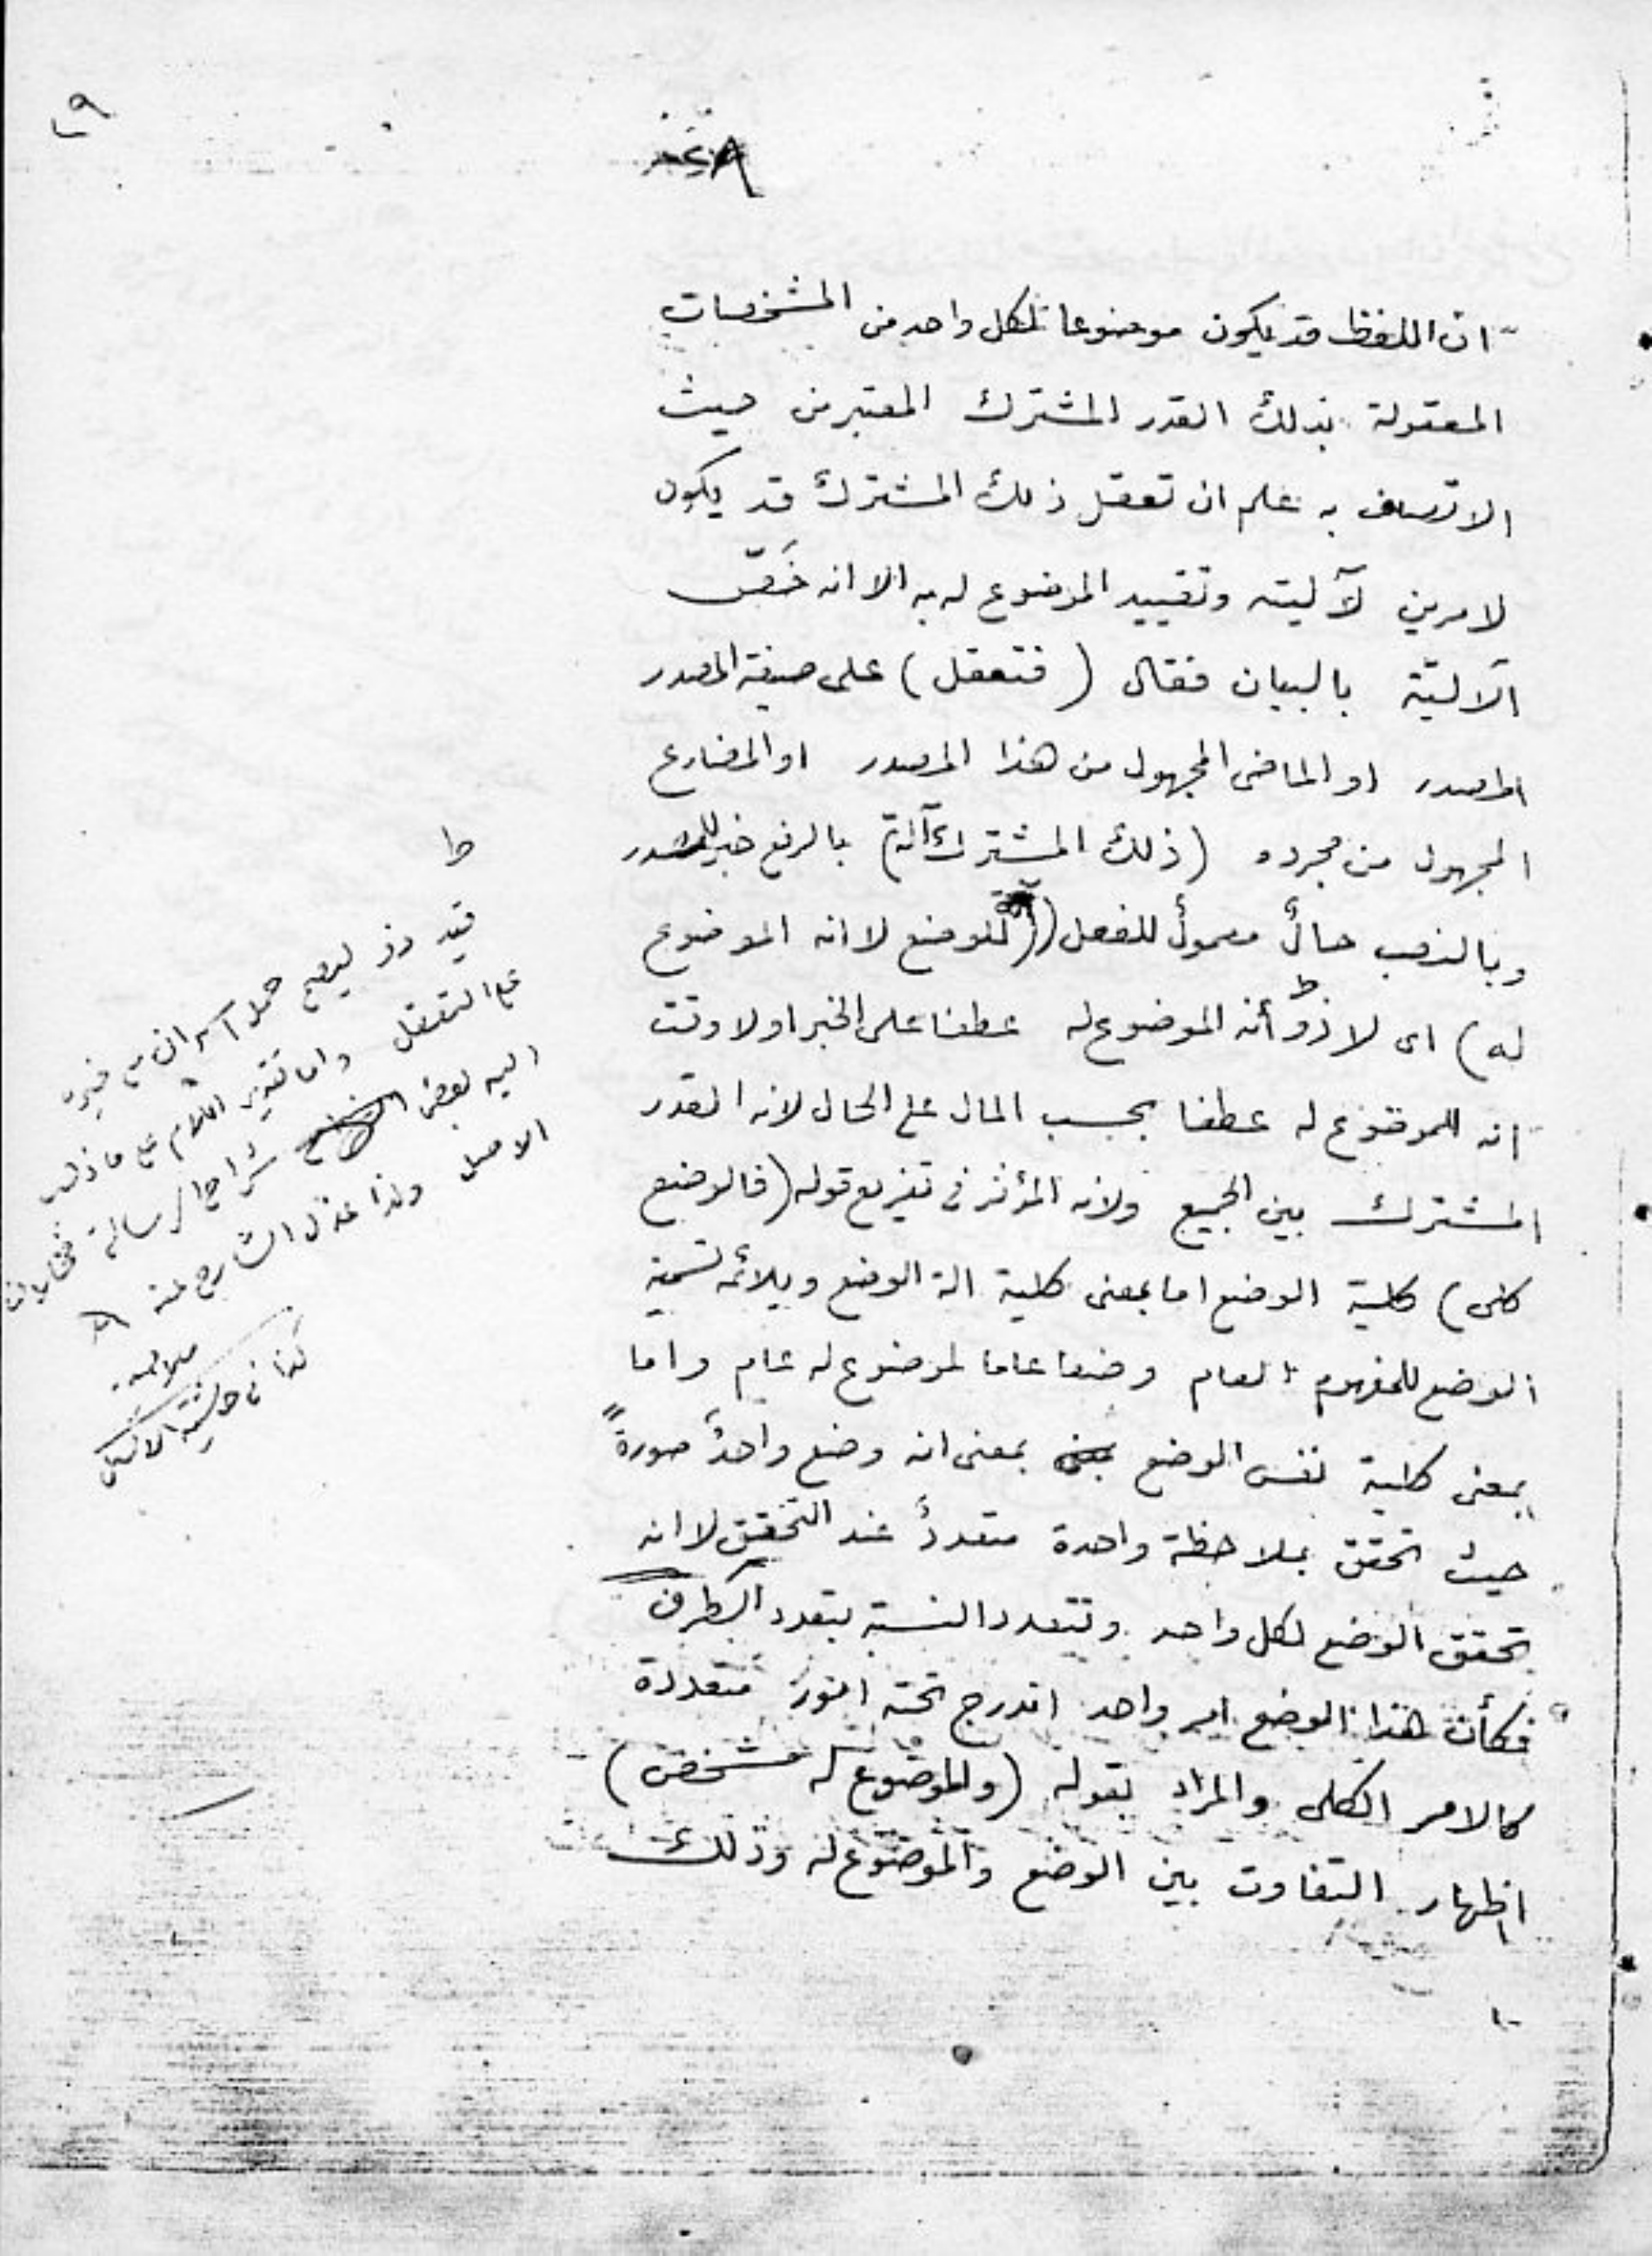 ٢٩
ان اللفظ قد يكون موضوعا لكل واحد من المشخصات
المعقولة بذلك القدر المشترك المعتبر من حيث
الاتصاف به علم ان تعقل ذلك المشترك قد يكون
لامرين لآليته وتقييد الموضوع له به الا انه خَصّ
الآلية بالبيان فقال (فتعقل) على صيغة المصدر
المصدر او الماضى المجهول من هذا المصدر او المضارع
المجهول من مجرده (ذلك المشترك آلة) بالرفع خبر للمصدر
وبالنصب حالٌ معمولٌ للفعل (للوضع لا انه الموضوع
له) اى لا ذو أنه الموضوع له عطفا على الخبر او لا وقت
انه للموضوع له عطفا بحسب المال على الحال لانه القدر
المشترك بين الجميع ولانه المؤثر فى تفريع قوله (فالوضع
كلى) كلية الوضع اما بمعنى كلية الة الوضع ويلائمه تسمية
الوضع للمفهوم العام وضعا عاما لموضوع له عام واما
بمعنى كلية نفس الوضع بمعنى انه وضع واحدٌ صورةً
حيث تحقق بملاحظة واحدة متعددٌ عند التحقق لا انه
تحقق الوضع لكل واحد وتتعدد النسبة بتعدد الطرف
فكأن هذا الوضع امر واحد اندرج تحته امور متعددة
كالامر الكلى والمراد بقوله (والموضوع له مشخص)
اظهار التفاوت بين الوضع والموضوع له وذلك
ط
قيد ذو ليصح حمل ان مع خبره
على التعقل واما تقدير اللام على ما ذهب
اليه بعض شراح الرسالة
الاصل ولذا عدل الشارح عنه
كذا فى حاشية